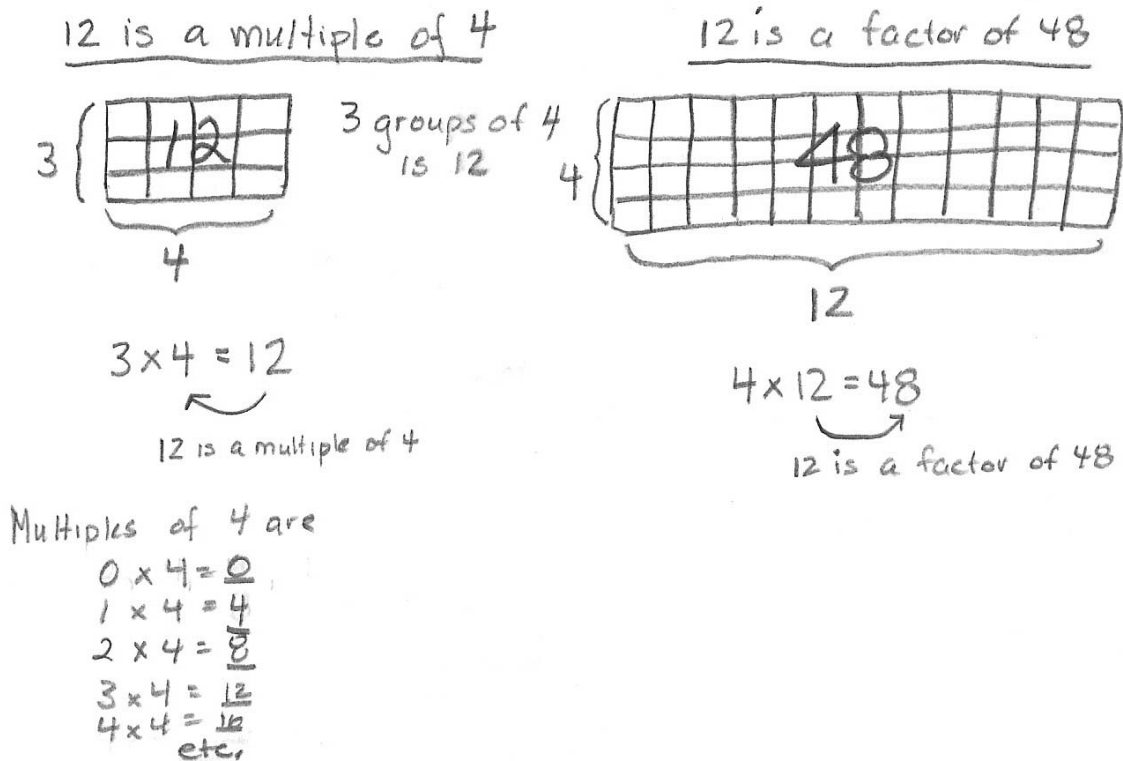 12 is a multiple of 4
3
12
4
3 groups of 4
is 12
3 × 4 = 12
12 is a multiple of 4
Multiples of 4 are
0 × 4 = 0
1 × 4 = 4
2 × 4 = 8
3 × 4 = 12
4 × 4 = 16
etc.
12 is a factor of 48
4
48
12
4 × 12 = 48
12 is a factor of 48